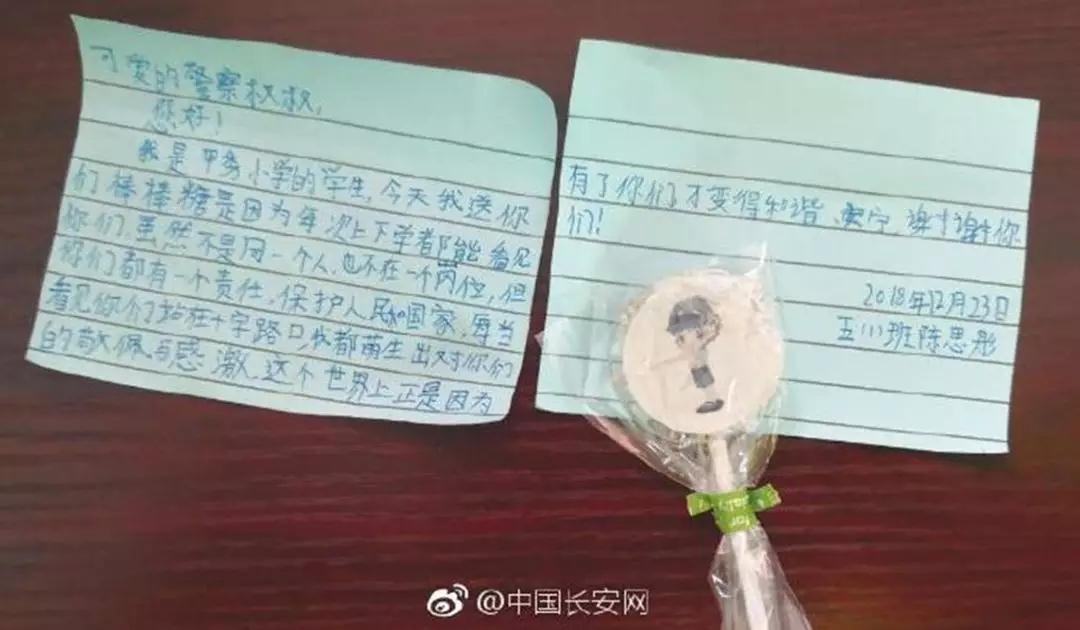 可爱的警察叔叔,
您好!
我是平乡小学的学生,今天我送你
们棒棒糖是因为每次上下学都能看见
你们,虽然不是同一个人,也不在一个岗位,但
你们都有一个责任,保护人民和国家,每当
看见你们站在十字路口我都萌生出对你们
的敬佩与感激,这个世界上正是因为
有了你们才变得和谐、安宁,谢谢你
们!
2018年12月23日
五(1)班陈思彤
for
@中国长安网